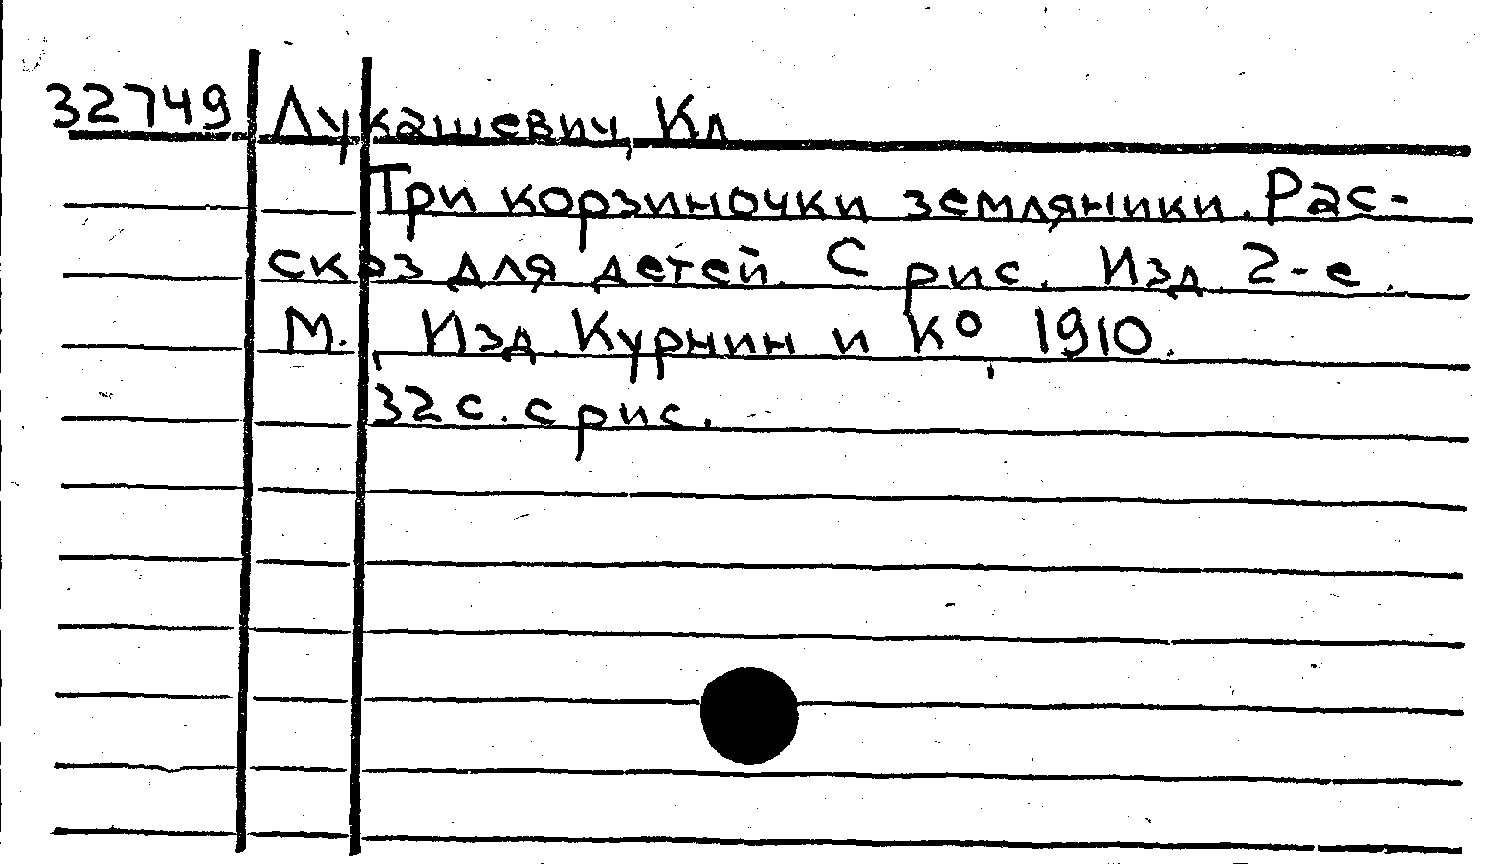 32749 Лукашевич, Кл
Три корзиночки земляники. Рас-
сказ для детей. С рис. Изд. 2-е.
М., Изд. Курнин и К°, 1910.
32 с. с рис.